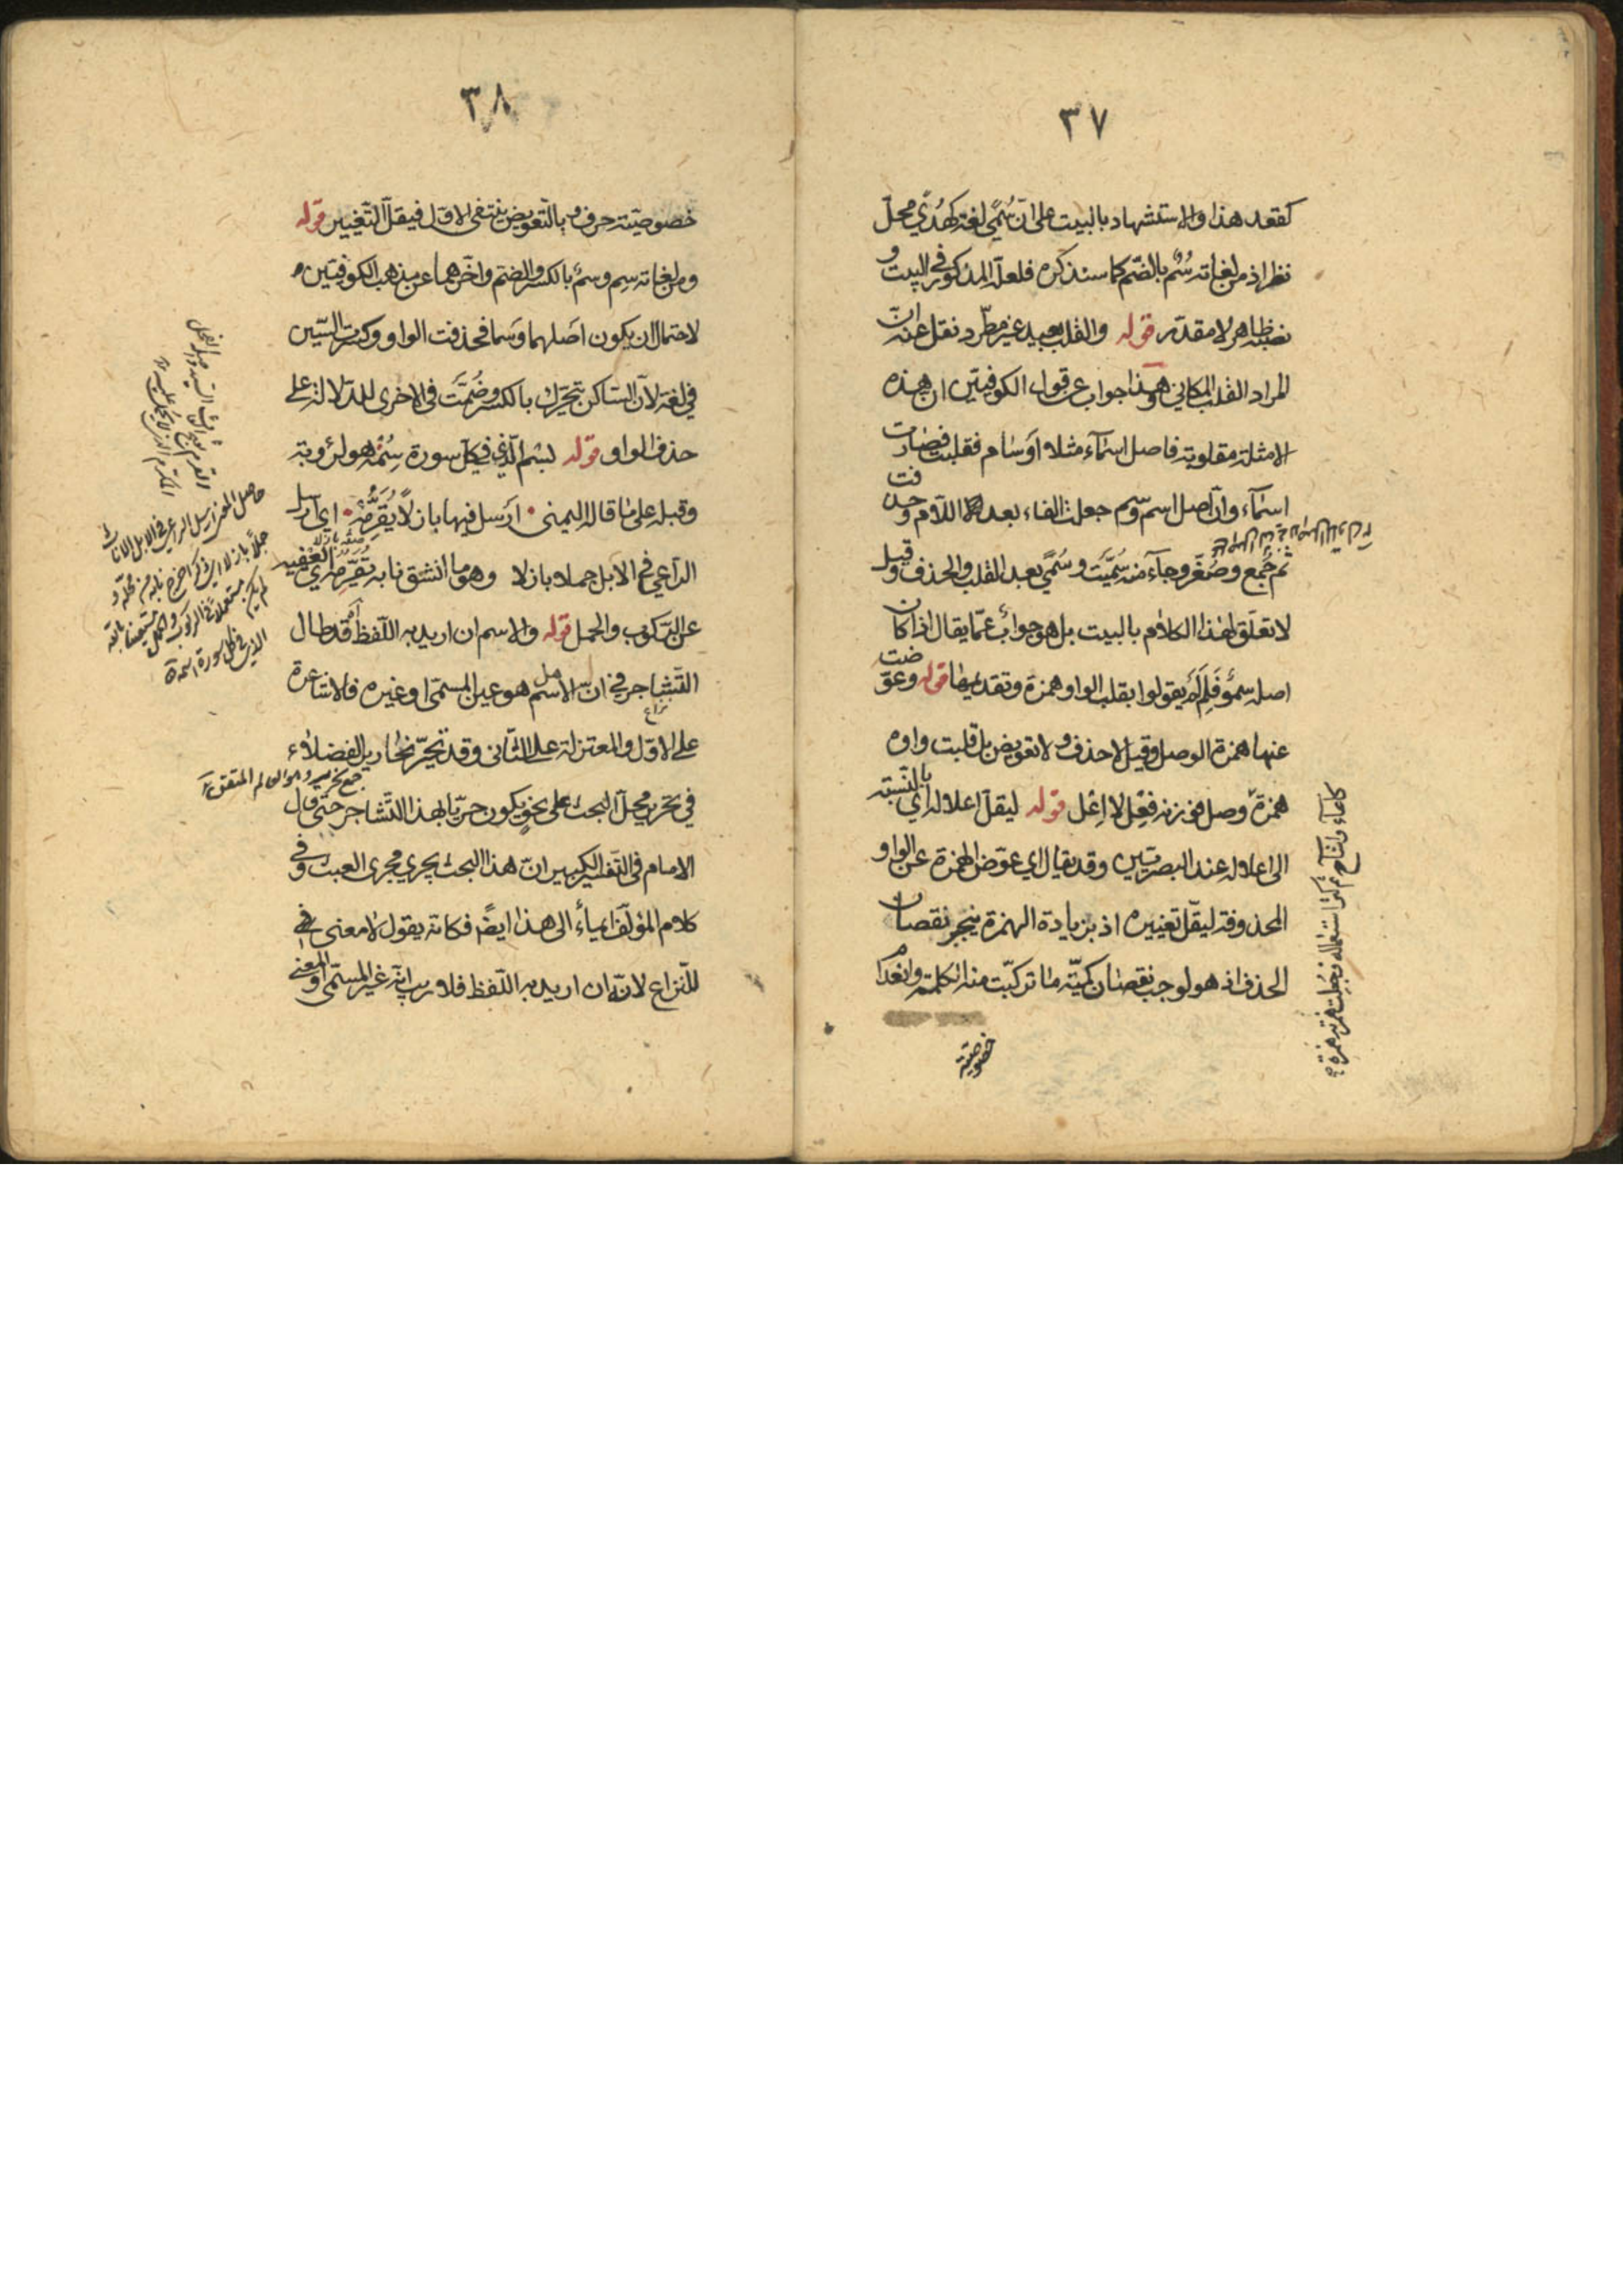 ٣٧
كقعد هذا والاستشهاد بالبيت على انّ سُمًى لغة كهُدًى محلّ
نظر اذ من لغاته سُمٌ بالضّم كما سنذكره فلعلّ المذكور في البيت و
نصبه ظاهر لا مقدّر قوله والقلب بعيد غير مطّرد نقل عنه انّ
المراد القلب المكاني وهذا جواب عن قول الكوفيّين ان هذه
الامثلة مقلوبة فاصل اسمآء مثلا اوسام فقلبت فصارت
اسمآء وانّ اصل اسم وسم جعلت الفاء بعد اللّام وحذفت
ثم جُمع وصُغّر وجآء منه سُمّيَت وسُمًى بعد القلب والحذف وقيل
لا تعلّق لهذا الكلام بالبيت بل هو جوابٌ عمّا يقال اذا كان
اصله سِموٌ فَلِمَ لَم يقولوا بقلب الواو همزة وتقديمها قوله وعوّضت
عنها همزة الوصل وقيل لا حذف ولا تعويض بل قلبت واوه
همزة وصل فوزنه فِعْل لا اِعْل قوله ليقلّ اعلاله اي بالنّسبة
الى اعلاله عند البصريّين وقد يقال اي عوّض الهمزة عن الواو
المحذوفة ليقلّ تغييره اذ بزيادة الهمزة ينجبر نقصان
الحذف اذ هو لوجب نقصان كميّة ما تركّبت منه الكلمة وانعدام
خصوصيّة
كاماء وانشآح ثم كثر استعماله فجُعِلت همزته همزة
٣٨
خصوصيّة حرف وبالتّعويض ينتفى الاوّل فيقلّ التّغيير قوله
ومن لغاته سِم وسمٌ بالكسر والضّم واخّرهما عن مذهب الكوفيّين
لاحتمال ان يكون اصلهما وسما فحذفت الواو وكسرت السّين
في لغة لانّ السّاكن تحرّك بالكسر وضُمّت في الاخرى للدّلالة على
حذف الواو قوله بسم الّذي في كلّ سورة سِمُه هو لرؤبة
وقبله على ما قاله اليمنى ارسل فيها بازلًا يُقَرِّمُه اي ارسل
الرّاعي في الابل جملا بازلا وهو ما انشق نابه
عن الرّكوب والحمل قوله والاسم ان اريد به اللّفظ آه قد طال
التّشاجر في ان الاسم هل هو عين المسمّى او غيره فالاشاعرة
نزاع
على الاوّل والمعتزلة على الثّانى وقد تحيّر نحارير الفضلاء
في تحرير محلّ البحث على نحو يكون حريّا بهذا التّشاجر حتى قال
الامام في التّفسير الكبير انّ هذا البحث يجري مجرى العبث وفي
كلام المؤلّف ايماءٌ الى هذا ايضًا فكانّه يقول لا معنى في
للنّزاع لانّه ان اريد به اللّفظ فلا ريب انّه غير المسمّى والمعنى